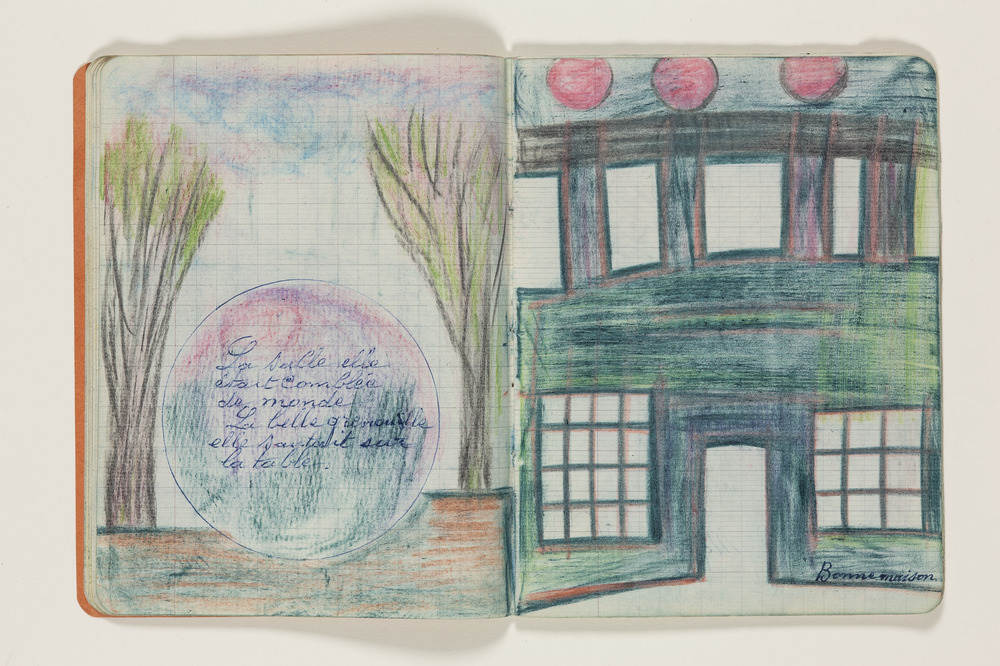 La salle elle
était comblée
de monde
La belle grenouille
elle sautait sur
la table.
Bonnemaison.